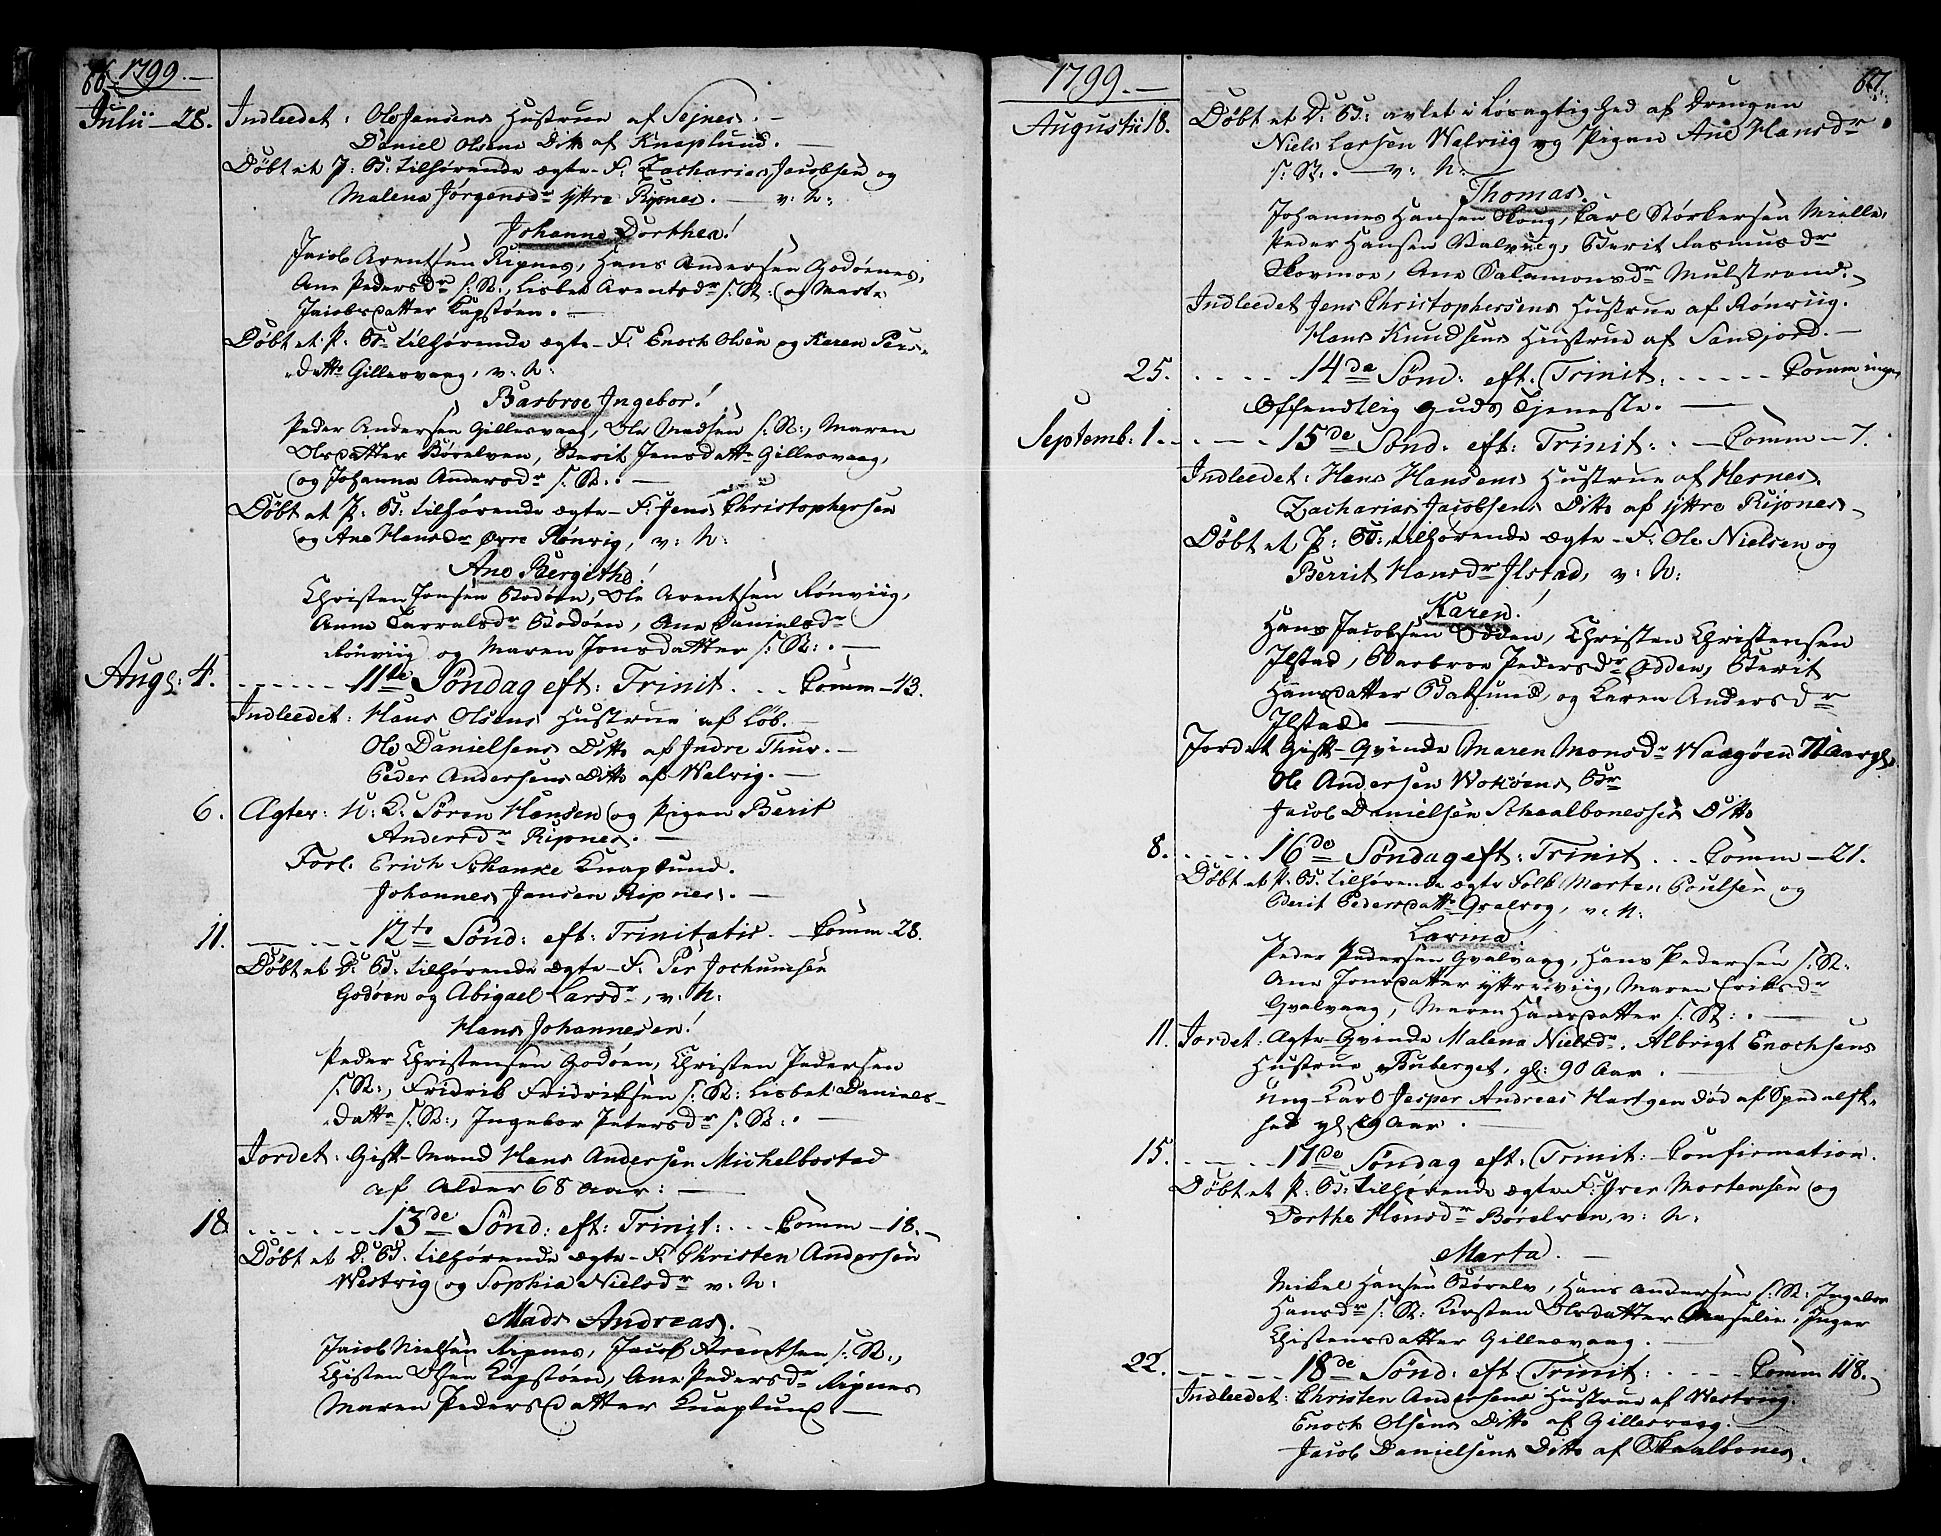 66. 1799.—
Julii — 28. Indleedet: Ole Jensens Hustrue af Sejnes.—
Daniel Olsens Ditto af Knaplund.—
Døbt et P: B: tilhørende ægte-F: Zacharias Jacobsen og
Malena Jørgensdr yttre Ripnes.— v: N:
Johanna Dorthea!
Jacob Arentsen Ripnes, Hans Andersen Godøenes,
Ane Pedersdr S: St:, Lisbet Arentsdr S: St: og Marte
Jacobsdatter Kapstøen.—
Døbt et P: B: tilhørende ægte-F: Enoch Olsen og Karen Pers-
-datter Gillesvaag, v: N:
Barbroe Ingebor!
Peder Andersen Gillesvaag, Ole Madsen S: St:, Maren
Olsdatter Børelven, Berit Jensdatter Gillesvaag,
og Johanna Andersdr S: St:.—
Døbt et P: B: tilhørende ægte-F: Jens Christophersen
og Ane Hansdr øvre Rønvig, v: N:
Ane Bergithe!
Christen Jensen Bodøen, Ole Arentsen Rønviig,
Anna Larsdr Bodøen, Ane Danielsdr
Rønviig og Maren Jonsdatter S: St:.—
Aug: 4. - - - - - - 11te Søndag eft: Trinit. - - Comm—43.
Indleedet: Hans Olsens Hustrue af Løb.—
Ole Danielsens Ditto af Indre Thuv.—
Peder Andersens Ditto af Walvig.—
6. Ægtev: U: K: Søren Hansen og Pigen Berit
Andersdr Ripnes.—
Forl: Erich Schanke Knaplund.
Johannes Jensen Ripnes.—
11. — - - - 12te Sønd: eft: Trinitatis. - Comm—28.
Døbt et D: B: tilhørende ægte-F: Per Jochumsen
Godøen og Abigael Larsdr, v: N:
Hans Johannesen!
Peder Christensen Godøen, Christen Pedersen
S: St:, Fridrik Fridriksen S: St: Lisbet Daniels-
-datter S: St:, Ingebor Petersdr S: St:.—
Jordet: Gift-Mand Hans Andersen Michelbostad
af Alder 68 Aar:—
18. - - - - - - 13de Sønd: eft: Trinit: - - Comm—18.—
Døbt et D: B: tilhørende ægte-F: Christen Andersen
Westvig og Sophia Nielsdr v: N:
Mads Andreas.
Jacob Nielsen Ripnes, Jacob Arentsen S: St:,
Christen Olsen Kapstøen, Ane Pedersdr Ripnes
Maren Pedersdatter Knaplund.—
1799.— 67.
Augustii 18. Døbt et D: B: avlet i Løsagtighed af Drengen
Niels Larsen Walviig og Pigen Ane Hansdr
S: St:.— v: N:
Thomas.
Johannes Hansen Skoug, Carl Størkersen Mælle,
Peder Hansen Valviig, Berit Rasmusdr
Skovmoe, Ane Salamonsdr Mulstrand.—
Indleedet Jens Christophersens Hustrue af Rønviig.
Hans Knudsens Hustrue af Sandjord.—
25. - - - - - 14de Sønd: eft: Trinit: - - - - - Comm: ingen
Offendtlig Guds Tjeneste.—
Septemb: 1. - - - - 15de Sønd: eft: Trinit: - Comm—7.
Indleedet: Hans Hansens Hustrue af Hernes.
Zacharias Jacobsens Ditto af yttre Ripnes.
Døbt et P: B: tilhørende ægte-F: Ole Nielsen og
Berrit Hansdr Ilstad, v: N:
Karen!
Hans Jacobsen Odden, Christen Christensen
Ilstad, Barbroe Pedersdr Odden, Berit
Hansdatter Batsund, og Karen Andersdr
Ilstad.—
Jordet Gift-Qvinde Maren Monsdr Waagøen 71 Aar gl.
Ole Andersen Wokøens Br
Jacob Danielsen Schaalbonesses Ditto
8. - - - - 16de Søndag eft: Trinit. - - Comm—21.
Døbt et P: B: tilhørende ægte Folk Morten Poulsen og
Berit Pedersdatter Qvalvog, v: N:
Lavina!
Peder Pedersen Qvalvaag, Hans Pedersen S: St:
Ane Jonsdatter ytterviig, Maren Eriksdr
Qvalvaag, Maren Hansdatter S: St:.—
11. Jordet. Ægte-Qvinde Malena Nielsdr. Albrigt Enochsens
Hustrue Tuberget, gl: 90 Aar.—
Ung-Karl Jesper Andreas Hartgen død af Spedalsk-
hed gl. 19 Aar.
15. - - - - 17de Søndag eft: Trinit: Confirmation.
Døbt et P: B: tilhørende ægte F: Iver Mortensen og
Dorthe Hansdr Børelven, v: N:
Marta.—
Mikel Hansen Børelv, Hans Andersen S: St: Ingebor
Hansdr S: St: Kirsten Olsdatter, Inger
Christensdatter Gillesvaag.—
22. - - - - - 18de Sønd: eft Trinit: - - - Comm 118.
Indleedet: Christen Andersens Hustrue af Westviig.
Enoch Olsens Ditto af Gillesvaag.
Jacob Danielsens Ditto af Skaalbones.